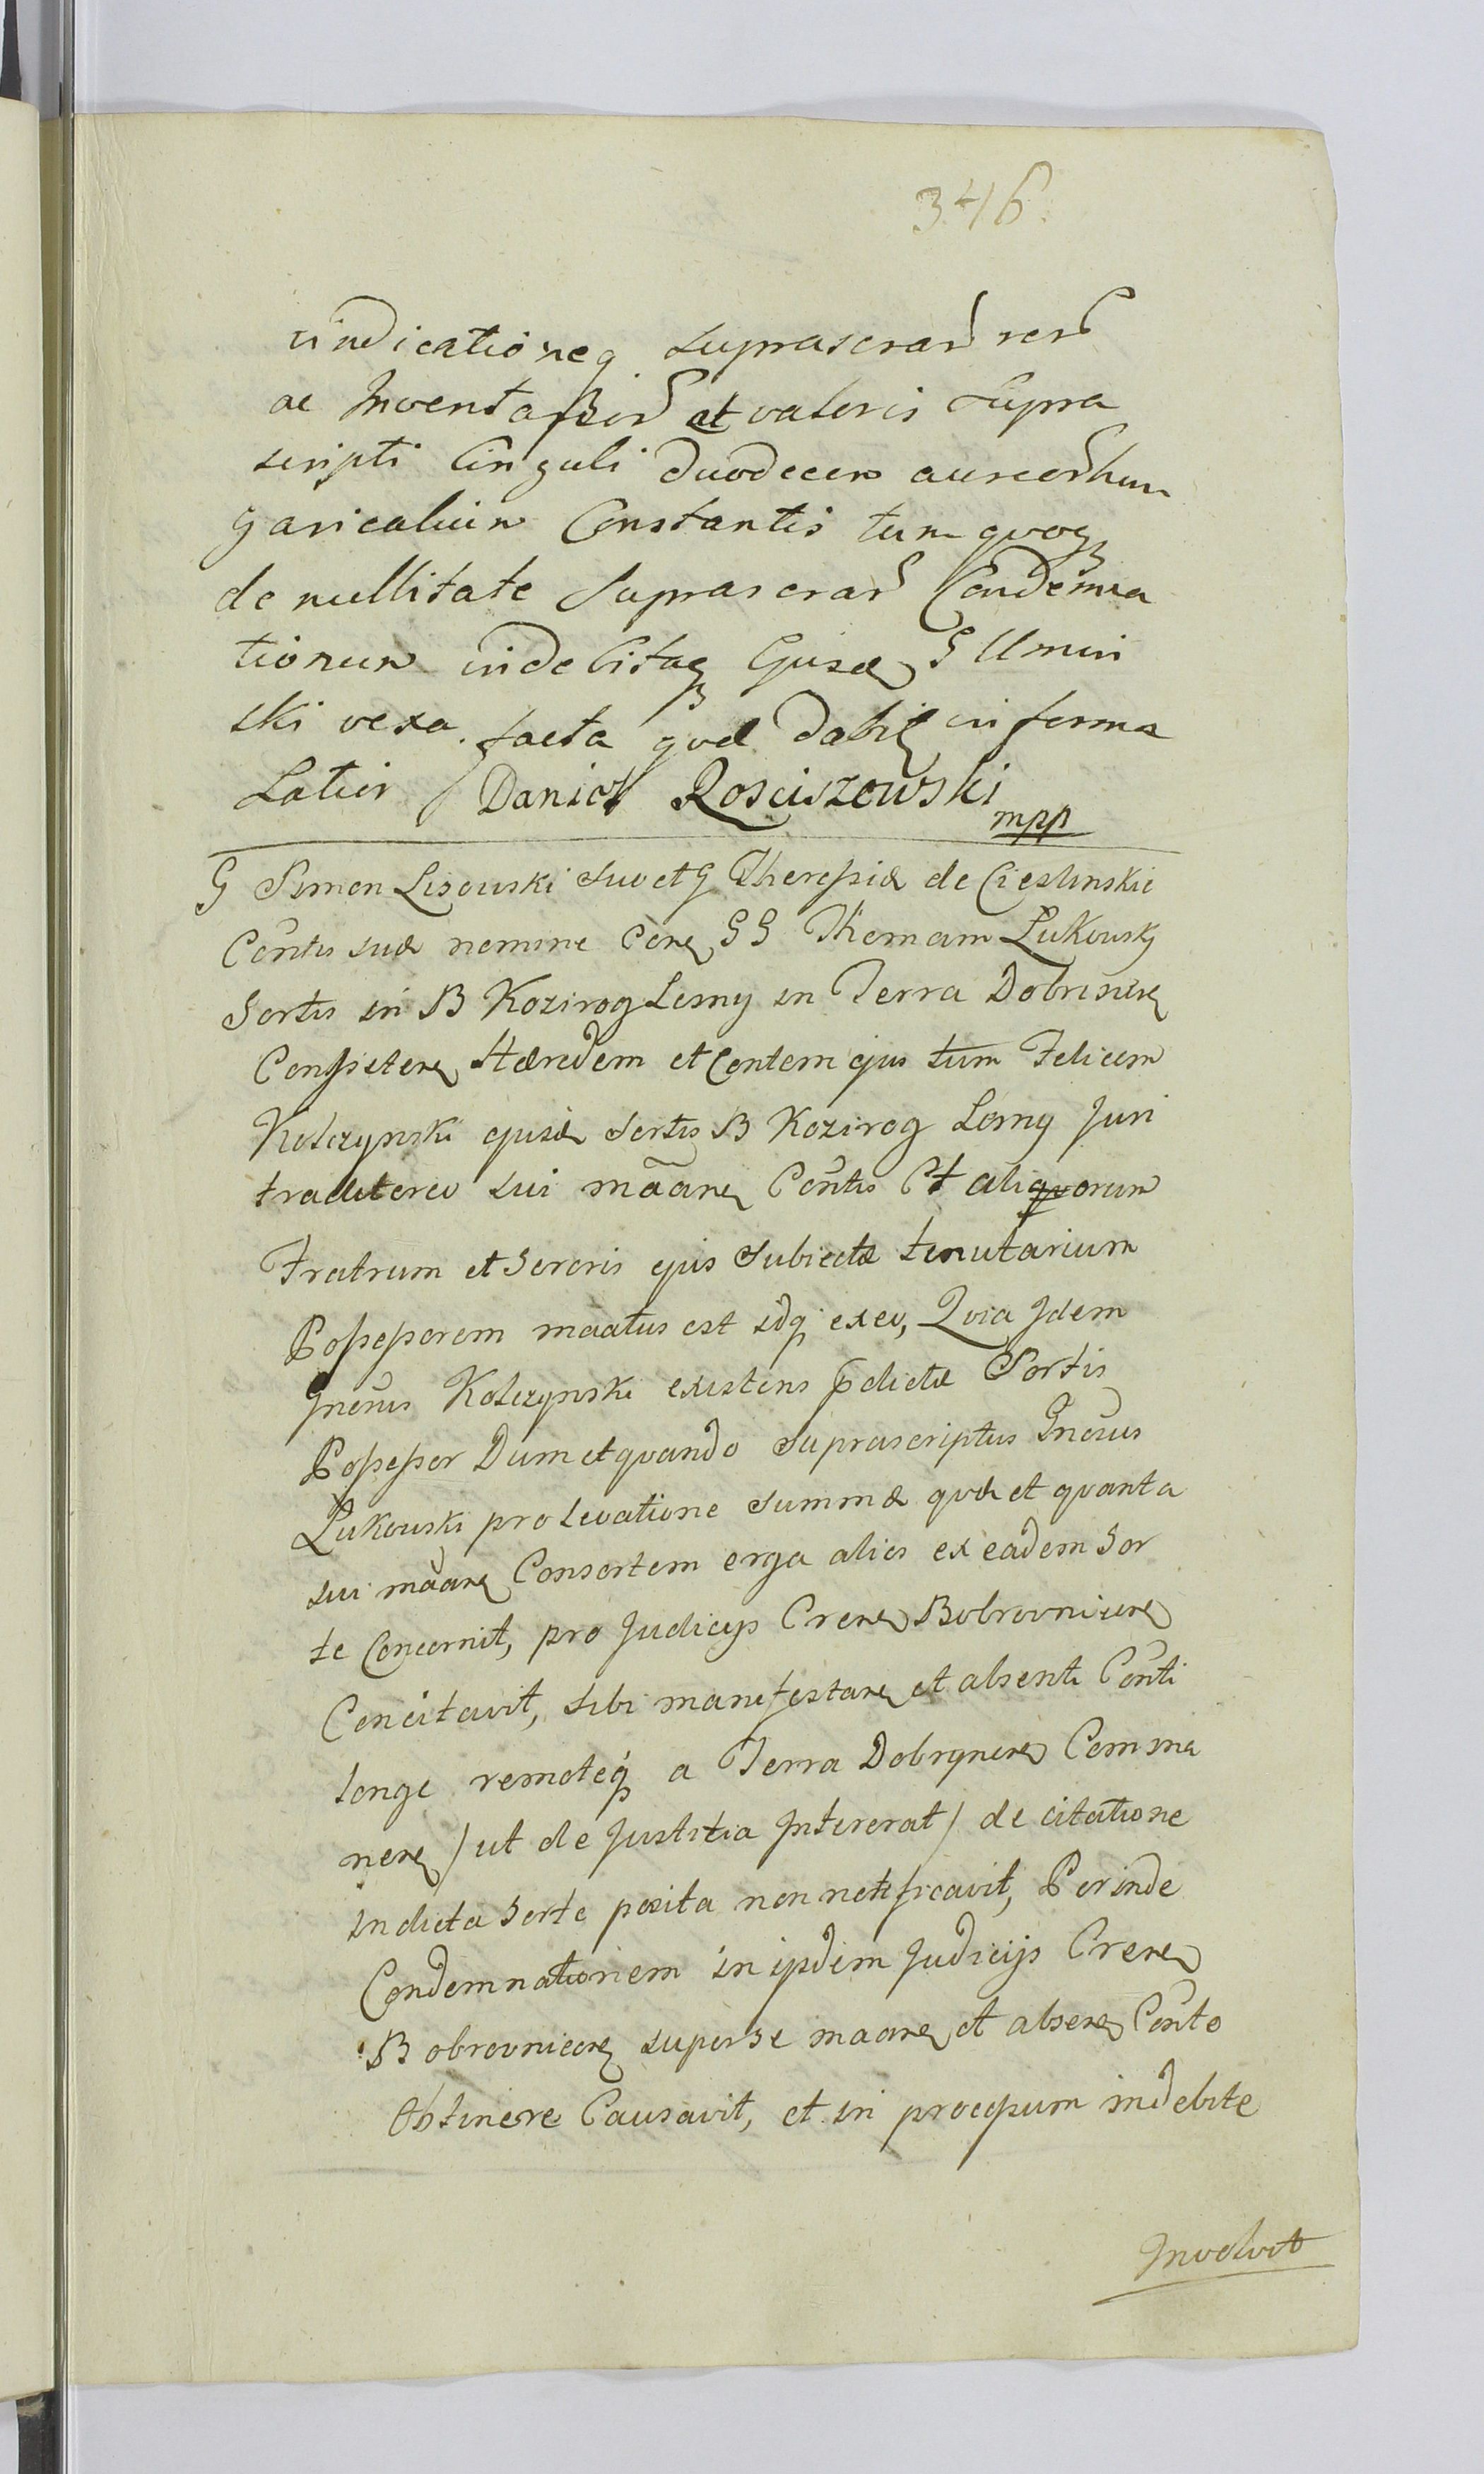 346.
vindicationeq suprascrar rer
ac Inventarior et valoris supra
scripti Cinguli duodecem aureor hun
garicaliun Constantis tum quoq
de nullitate suprascrar Condemna
tionum indebitaq Ejusd G Umin
ski vexa facta qvae dabit in forma
Latior Daniel Rosciszowski
mpp
G Simon Lisowski suo et G Theressiae de Cieslinskie
Contis suae nomine Cora GG Thomam Lukowsky
Sortis in B Kozirog Lesny in Terra Dobrinen
Conssisten Haeredem et Contem ejus tum Felicem
Kolczynski ejusd Sortis B Kozirog Lesny Juri
traditoreo sui maãnen Contis Ct aliquorum
Fratrum et Sororis ejus Subiectae tenutarium
Possessorem maatus est idq ex eo, Qvia Idem
Gnerus Kolczynski existens pdictae Sortis
Possessor Dum et quando Suprascriptus Gnosus
Lukowski pro levatione Summae quae et quanta
sui maãnen Consortem erga alios ex eadem Sor
te Concernit, pro Judicijs Cren Bobrovnicen
Concitavit, sibi manifestan et absenti Conti
longe remoteq a Terra Dobrynen Comma
nen / ut de Justitia Intererat / de citatione
in dicta Sorte posita non notificavit, Perinde
Condemnationem in ijsdem Judicijs Cren
Bobrovnicen super se maanen et absen Conte
Obtinere Causavit, et in processum indebite
Involvit